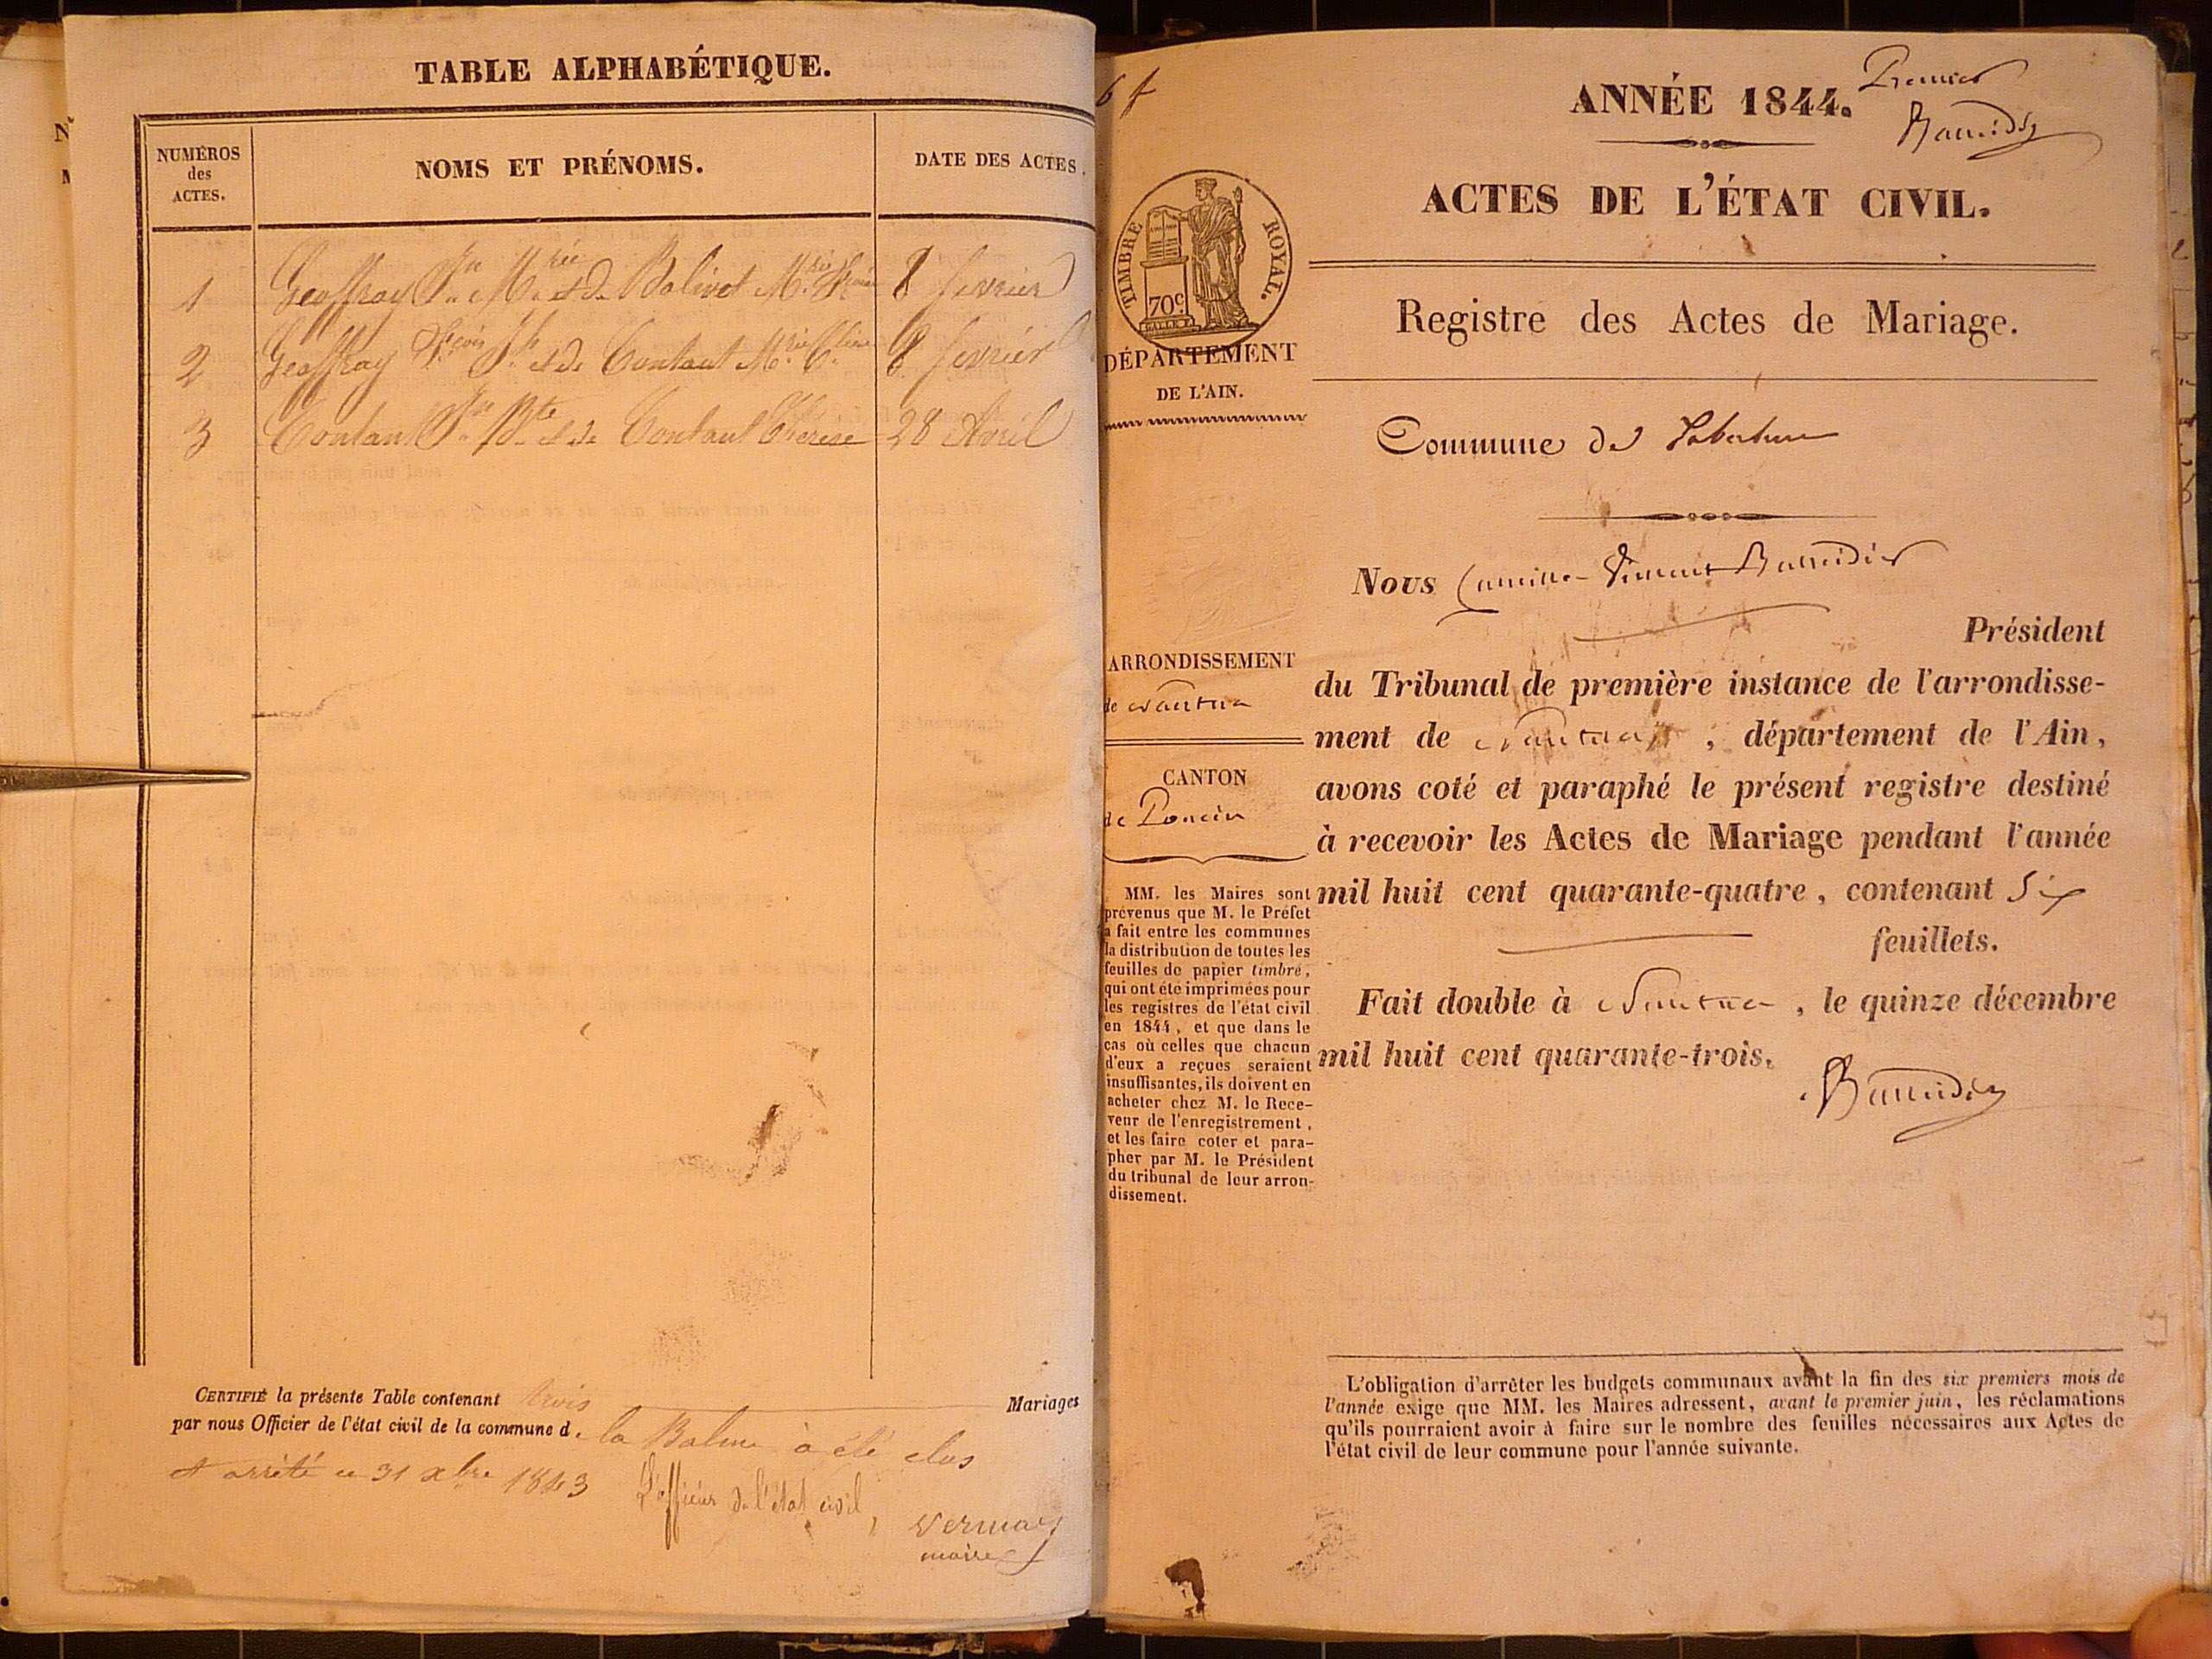 TABLE ALPHABÉTIQUE.
NUMÉROS
des
ACTES.
NOMS ET PRÉNOMS.
DATE DES ACTES.
1 Geoffray Jn Mrie et de Balivet Mrie 8 fevrier
2 Geoffray Fcois Jh et de Contant Mrie 8 fevrier
3 Contant Jn Bte et de Contant Thérèse 28 Avril
CERTIFIÉ la présente Table contenant trois Mariages
par nous Officier de l'état civil de la commune d. la Balme a été clos
et arrêté ce 31 xbre 1843
L'officier de l'état civil,
maire
ANNÉE 1844.
Premier
ACTES DE L'ÉTAT CIVIL.
TIMBRE ROYAL.
70c.
DÉPARTEMENT
DE L'AIN.
Registre des Actes de Mariage.
Commune de Labalme
Nous Camille Vincent
Président
ARRONDISSEMENT
de Nantua
CANTON
de Poncin
du Tribunal de première instance de l'arrondisse-
ment de Nantua, département de l'Ain,
avons coté et paraphé le présent registre destiné
à recevoir les Actes de Mariage pendant l'année
mil huit cent quarante-quatre, contenant Six
feuillets.
Fait double à Nantua, le quinze décembre
mil huit cent quarante-trois.
MM. les Maires sont
prévenus que M. le Préfet
a fait entre les communes
la distribution de toutes les
feuilles de papier timbré,
qui ont été imprimées pour
les registres de l'état civil
en 1844, et que dans le
cas où celles que chacun
d'eux a reçues seraient
insuffisantes, ils doivent en
acheter chez M. le Rece-
veur de l'enregistrement,
et les faire coter et para-
pher par M. le Président
du tribunal de leur arron-
dissement.
L'obligation d'arrêter les budgets communaux avant la fin des six premiers mois de
l'année exige que MM. les Maires adressent, avant le premier juin, les réclamations
qu'ils pourraient avoir à faire sur le nombre des feuilles nécessaires aux Actes de
l'état civil de leur commune pour l'année suivante.